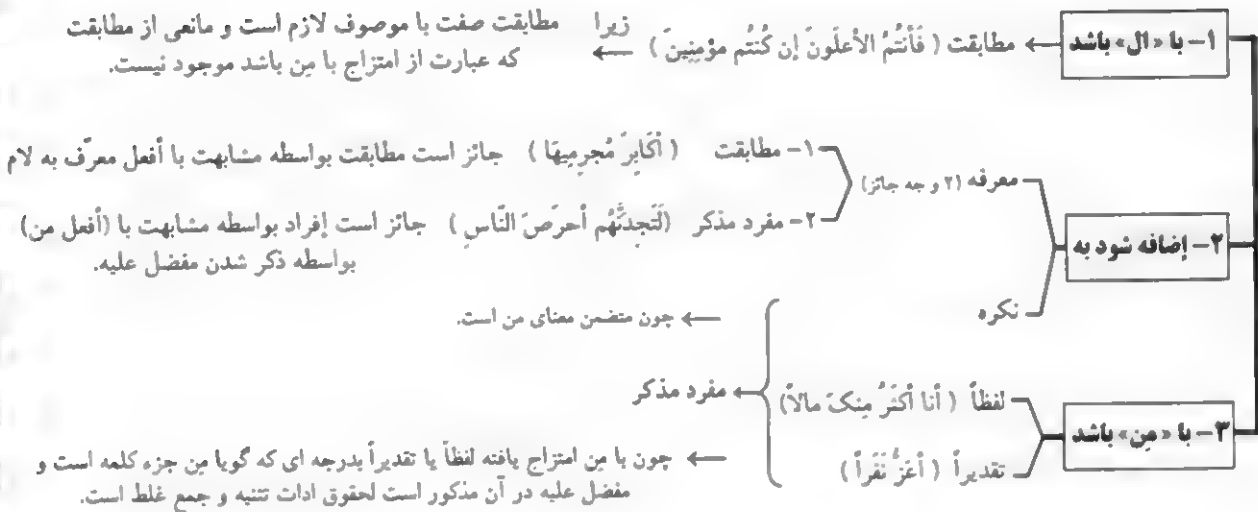 ۱– با «ال» باشد ← مطابقت ( فَأنتُمُ الأعلَونَ إن كُنتُم مؤمِنِينَ ) زیرا ← مطابقت صفت با موصوف لازم است و مانعی از مطابقت
که عبارت از امتزاج با مِن باشد موجود نیست.
۲– إضافه شود به
معرفه (۲ وجه جائز)
۱– مطابقت ( أكَابِرَ مُجرِمِيهَا ) جائز است مطابقت بواسطه مشابهت با أفعل معرّف به لام
۲– مفرد مذکر (لَتَجِدَنَّهُم أحرَصَ النّاسِ ) جائز است إفراد بواسطه مشابهت با (أفعل من)
بواسطه ذکر شدن مفضل علیه.
نکره
← چون متضمن معنای من است.
۳– با «مِن» باشد
لفظاً ( أنا أكثَرُ مِنكَ مالاً)
تقدیراً ( أعَزُّ نَفَراً )
← مفرد مذکر
← چون با مِن امتزاج یافته لفظاً یا تقدیراً بدرجه ای که گویا مِن جزء کلمه است و
مفضل علیه در آن مذکور است لحقوق ادات تثنیه و جمع غلط است.